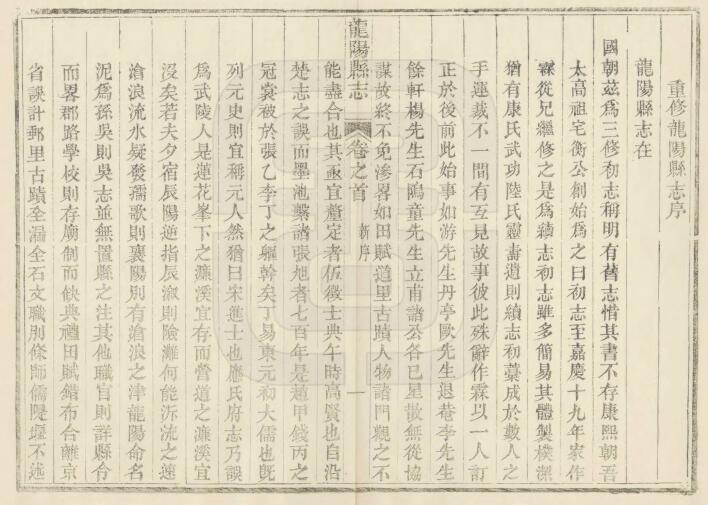 重修龍陽縣志序
龍陽縣志在
國朝茲爲三修初志稱明有舊志惜其書不存康熙朝吾
太高祖宅衡公創始爲之曰初志至嘉慶十九年家作
霖從兄繼修之是爲續志初志雖多簡易其體製樸潔
猶有康氏武功陸氏靈壽遺則續志初藁成於數人之
手運裁不一間有互見故事彼此殊辭作霖以一人訂
正於後前此始事如游先生丹亭歐先生退菴李先生
餘軒楊先生石鳴童先生立甫諸公各已星散無從協
謀故終不免滲畧如田賦道里古蹟人物諸門觀之不
能盡合也其亟宜釐定者伍徵士典午時高賢也自沿
楚志之誤而墨池繫諸張旭者七百年是趙甲錢丙之
冠裳被於張乙李丁之軀幹矣丁易東元初大儒也旣
列元史則宜稱元人然猶曰宋進士也應氏府志乃誤
爲武陵人是蓮花峯下之濂溪宜存而營道之濂溪宜
沒矣若夫夕宿辰陽逆指辰溆則險灘何能泝流之速
滄浪流水疑發孺歌則襄陽別有滄浪之津龍陽命名
泥爲孫吳則吳志並無置縣之注其他職官則詳縣令
而畧郡路學校則存廟制而缺典禮田賦錯布合離京
省誤計郵里古蹟全漏金石文職別條師儒隄堰不述
龍陽縣志
卷之首
新序
一